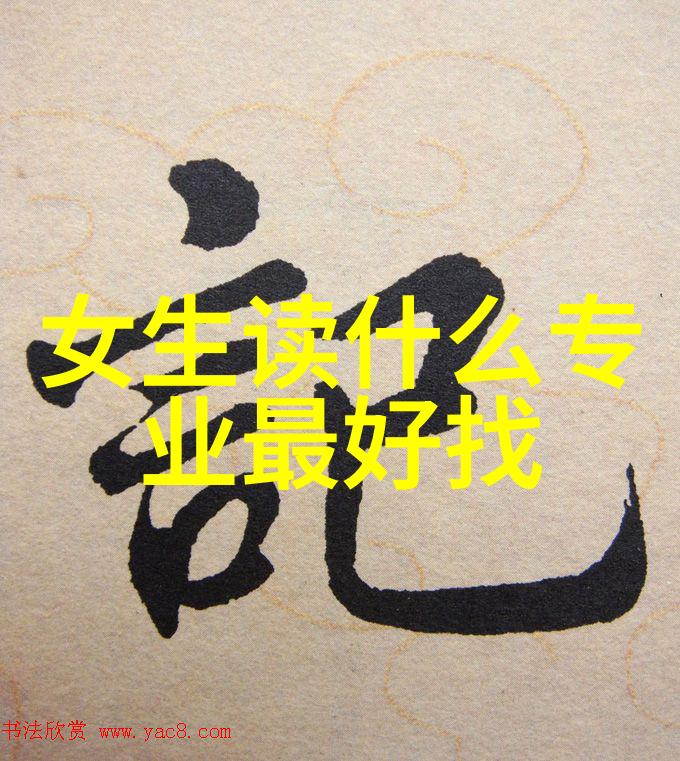 記
女生读什么专
业最好找
书法欣赏 www.yac8.com